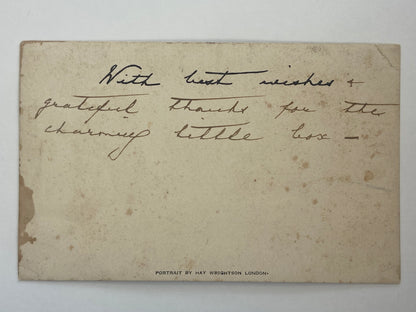 With best wishes &
grateful thanks for the
charming little box –
PORTRAIT BY HAY WRIGHTSON LONDON.